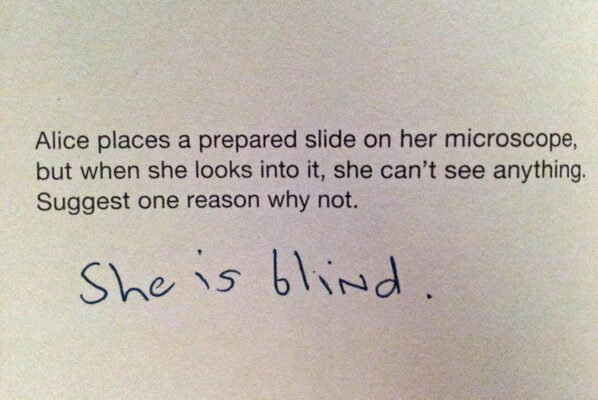 Alice places a prepared slide on her microscope,
but when she looks into it, she can't see anything.
Suggest one reason why not.
She is blind.